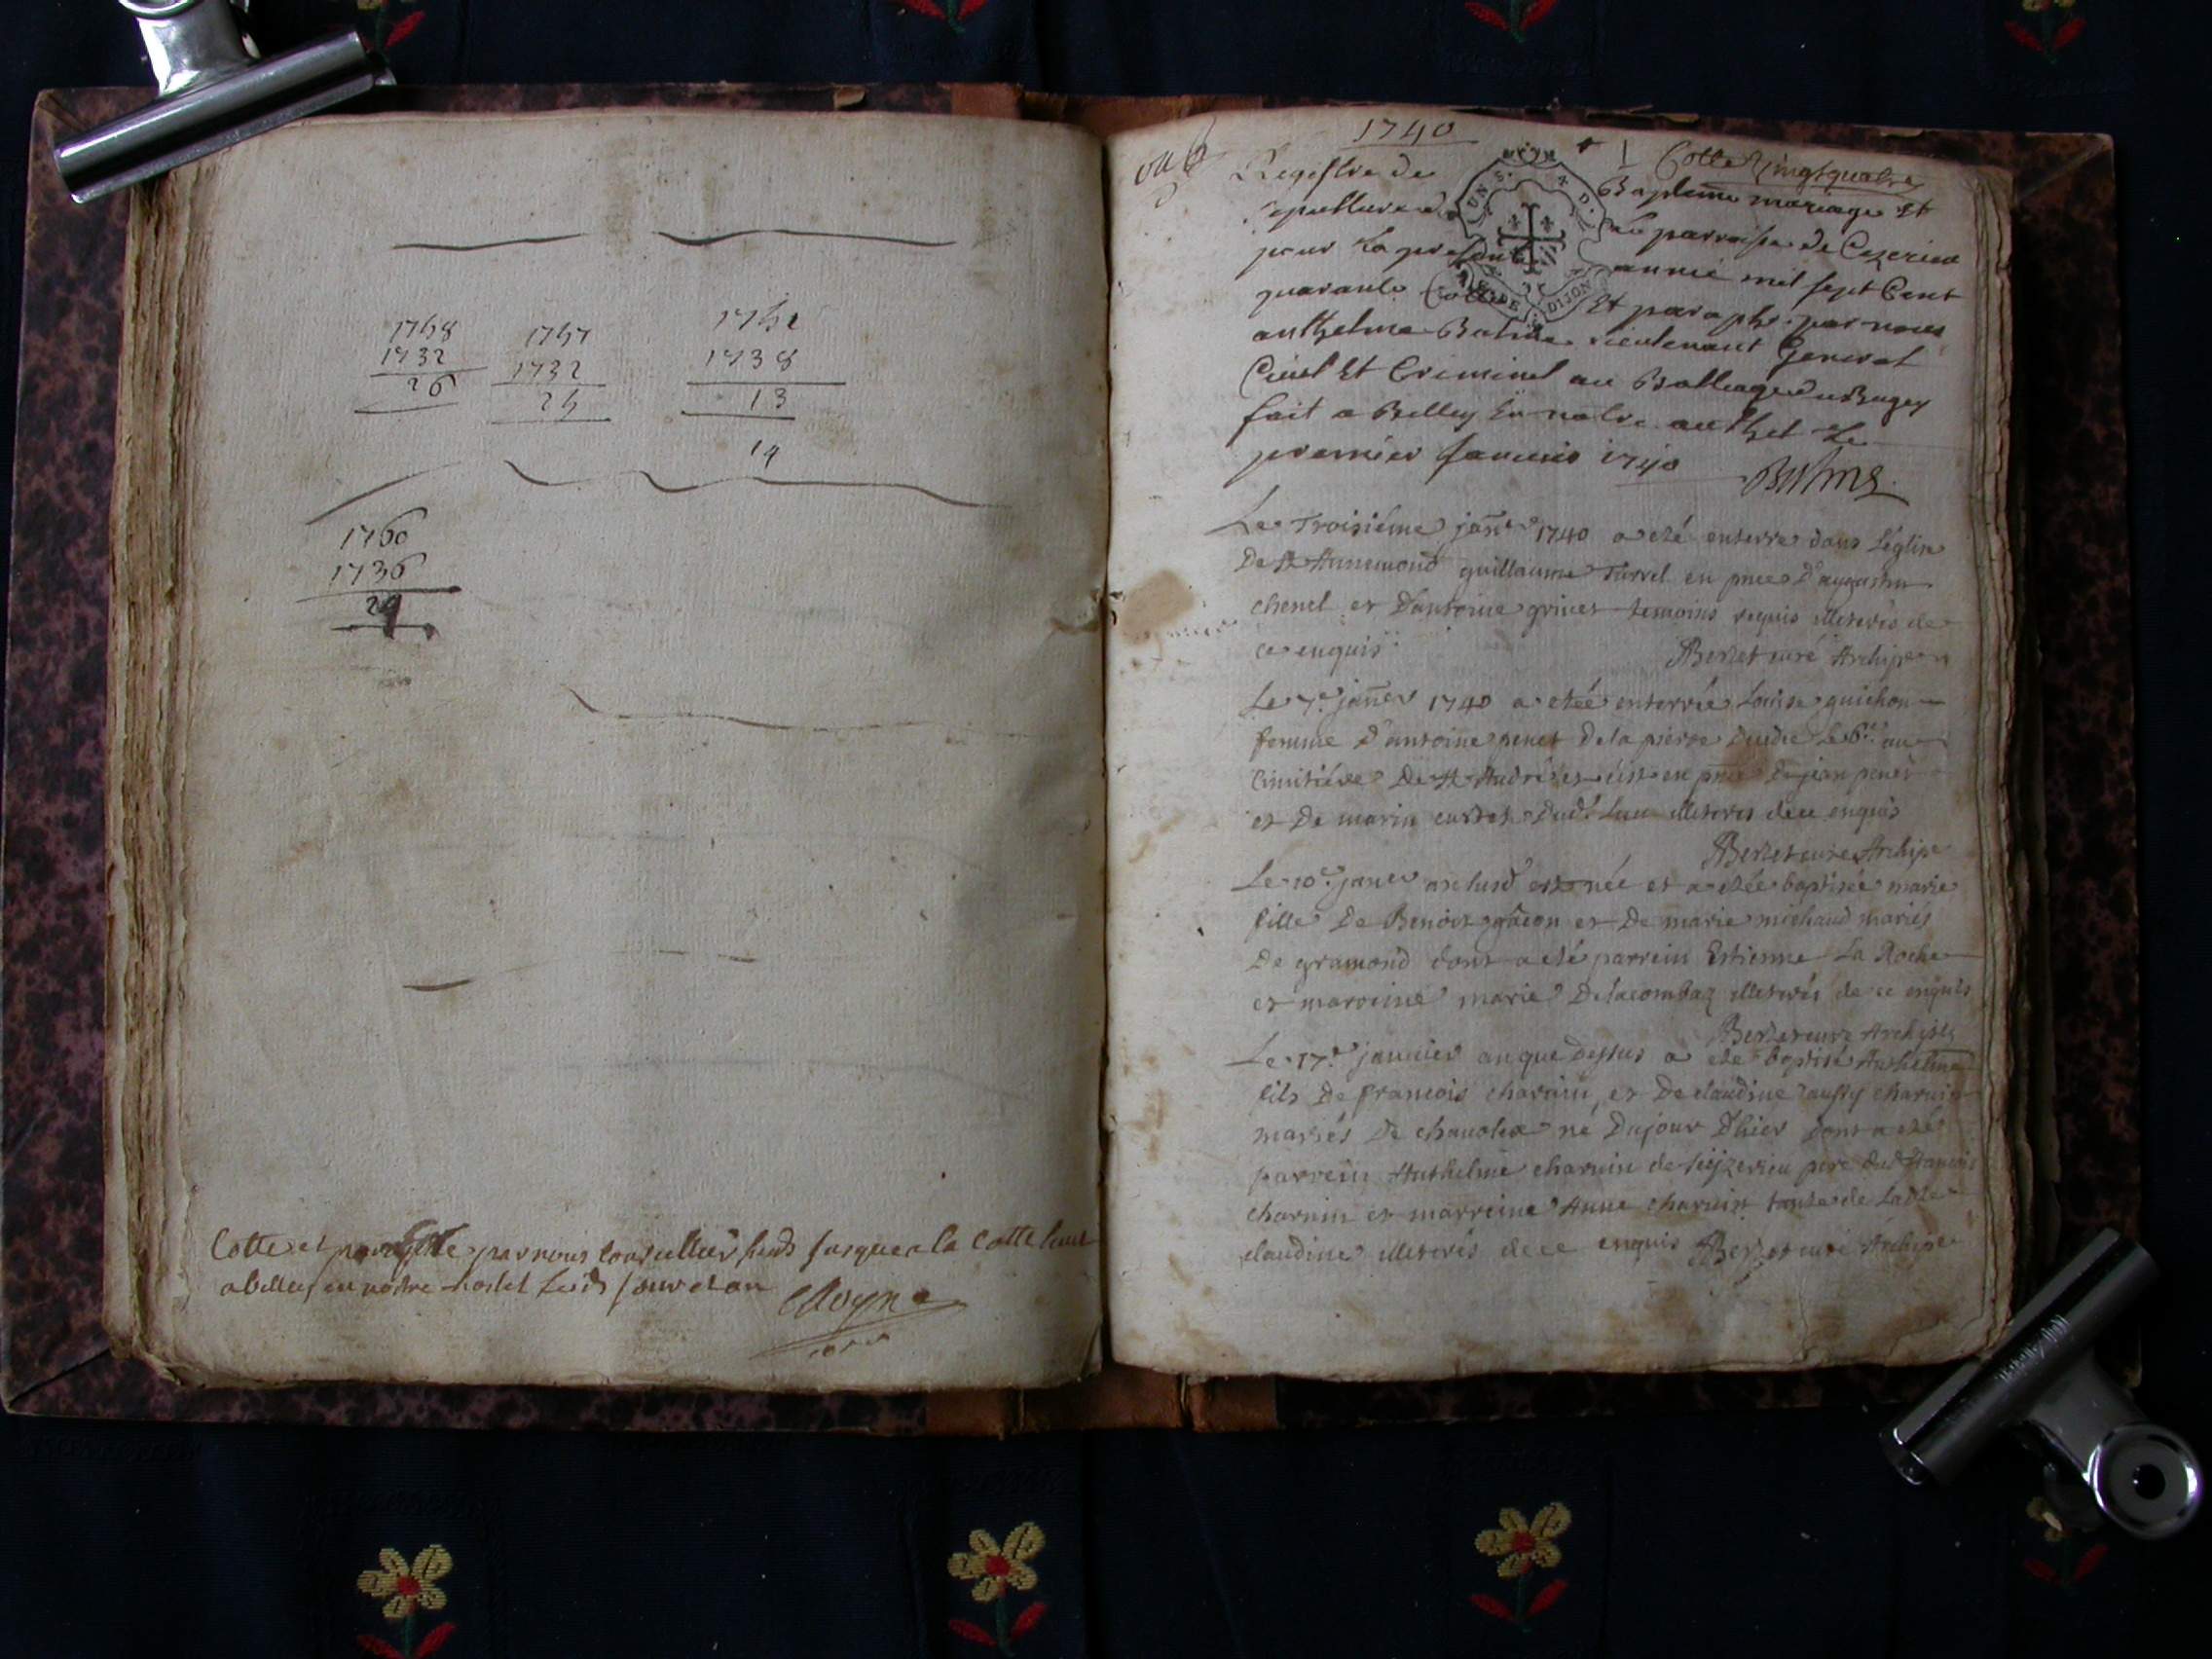 1758
1732
26
1757
1732
25
1751
1738
13
14
1760
1736
24
Cotte et paraphé par nous conseiller susd jusques a la cotte huit
a belley en notre hostel lesd jour et an
1740
1 Cotte vingt quatre
Registre de Bapteme mariage et
sepulture de la parroisse de Cezerieu
pour la presente année mil sept Cent
quarante Cotté Et paraphé par nous
anthelme Balme Lieutenant General
Civil Et Criminel au Balliage du Bugey
fait a Belley En notre authel Le
premier Janvier 1740 Balme
UN S. 4 D.
G. DE DIJON
Le Troisiéme janer 1740 a eté enterré dans l'église
De St Annemond guillaume Turrel en pnce D'augustin
chenel et D'antoine grinet temoins requis illeterés de
ce enquis Berzet curé Archip
Le 7e janer 1740 a etée enterrée Louise guichon
femme D'antoine penet De la pierre Decedée le 6e au
Cimitiére De St André et c'est en pnce De jean penet
et De marin curtet Dud. Lieu illeterés de ce enquis
Berzet curé Archip
Le 10e janer an susd est née et a etée baptisée marie
fille De Benoit gacon et De marie michaud mariés
De gramond dont a eté parrein Estienne La Roche
et marreine marie Delacombaz illeterés de ce enquis
Berzet curé Archip
Le 17e janvier an que dessus a eté baptisé Anthelme
fils De françois charvin, et De claudine charvin
mariés De chavolex né Dujour D'hier dont a eté
parrein Anthelme charvin de seyzerieu pere dud françois
charvin et marreine Anne charvin tante de Ladte
claudine illeterés de ce enquis Berzet curé Archip